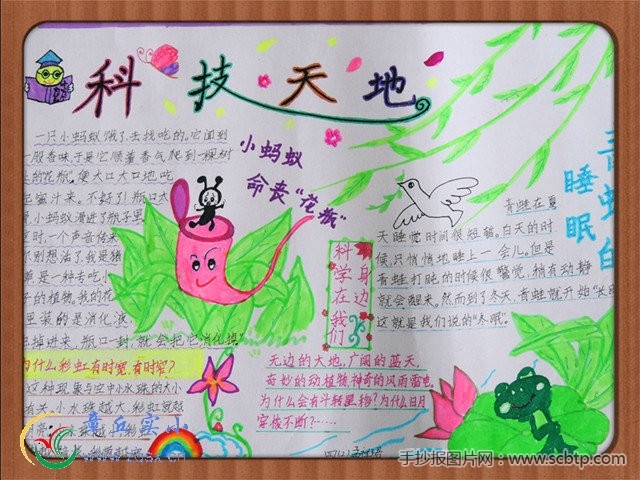 科技天地
一只小蚂蚁饿了,去找吃的。它闻到
一股香味,于是它顺着香气爬到一棵树
的花瓶。便大口大口地吃
蜜汁来。不好了!瓶口太
小蚂蚁滑进了瓶子里
时,一个声音传来
别想活了,我是猪
是一种专吃小
的植物,我的花
里装的是消化液,
掉进来,瓶口一封,就会把它消化掉"
小蚂蚁
命丧"花瓶"
为什么彩虹有时宽,有时窄?
这种现象与空中小水珠的大小
有关,小水珠越大,彩虹宽越
科学在我们
身边
无边的大地,广阔的蓝天,
奇妙的动植物,神奇的风雨雷电,
为什么会有斗转星移?为什么日月
穿梭不断?……
青蛙
睡眠
青蛙在夏
天睡觉时间很短暂。白天的时
候,只悄悄地睡上一会儿。但是
青蛙打盹的时候很警觉,稍有动静
就会醒来。然而到了冬天,青蛙就开始"长
这就是我们说的"冬眠"。
章丘实小
手抄报图片网:www.scbtp.com